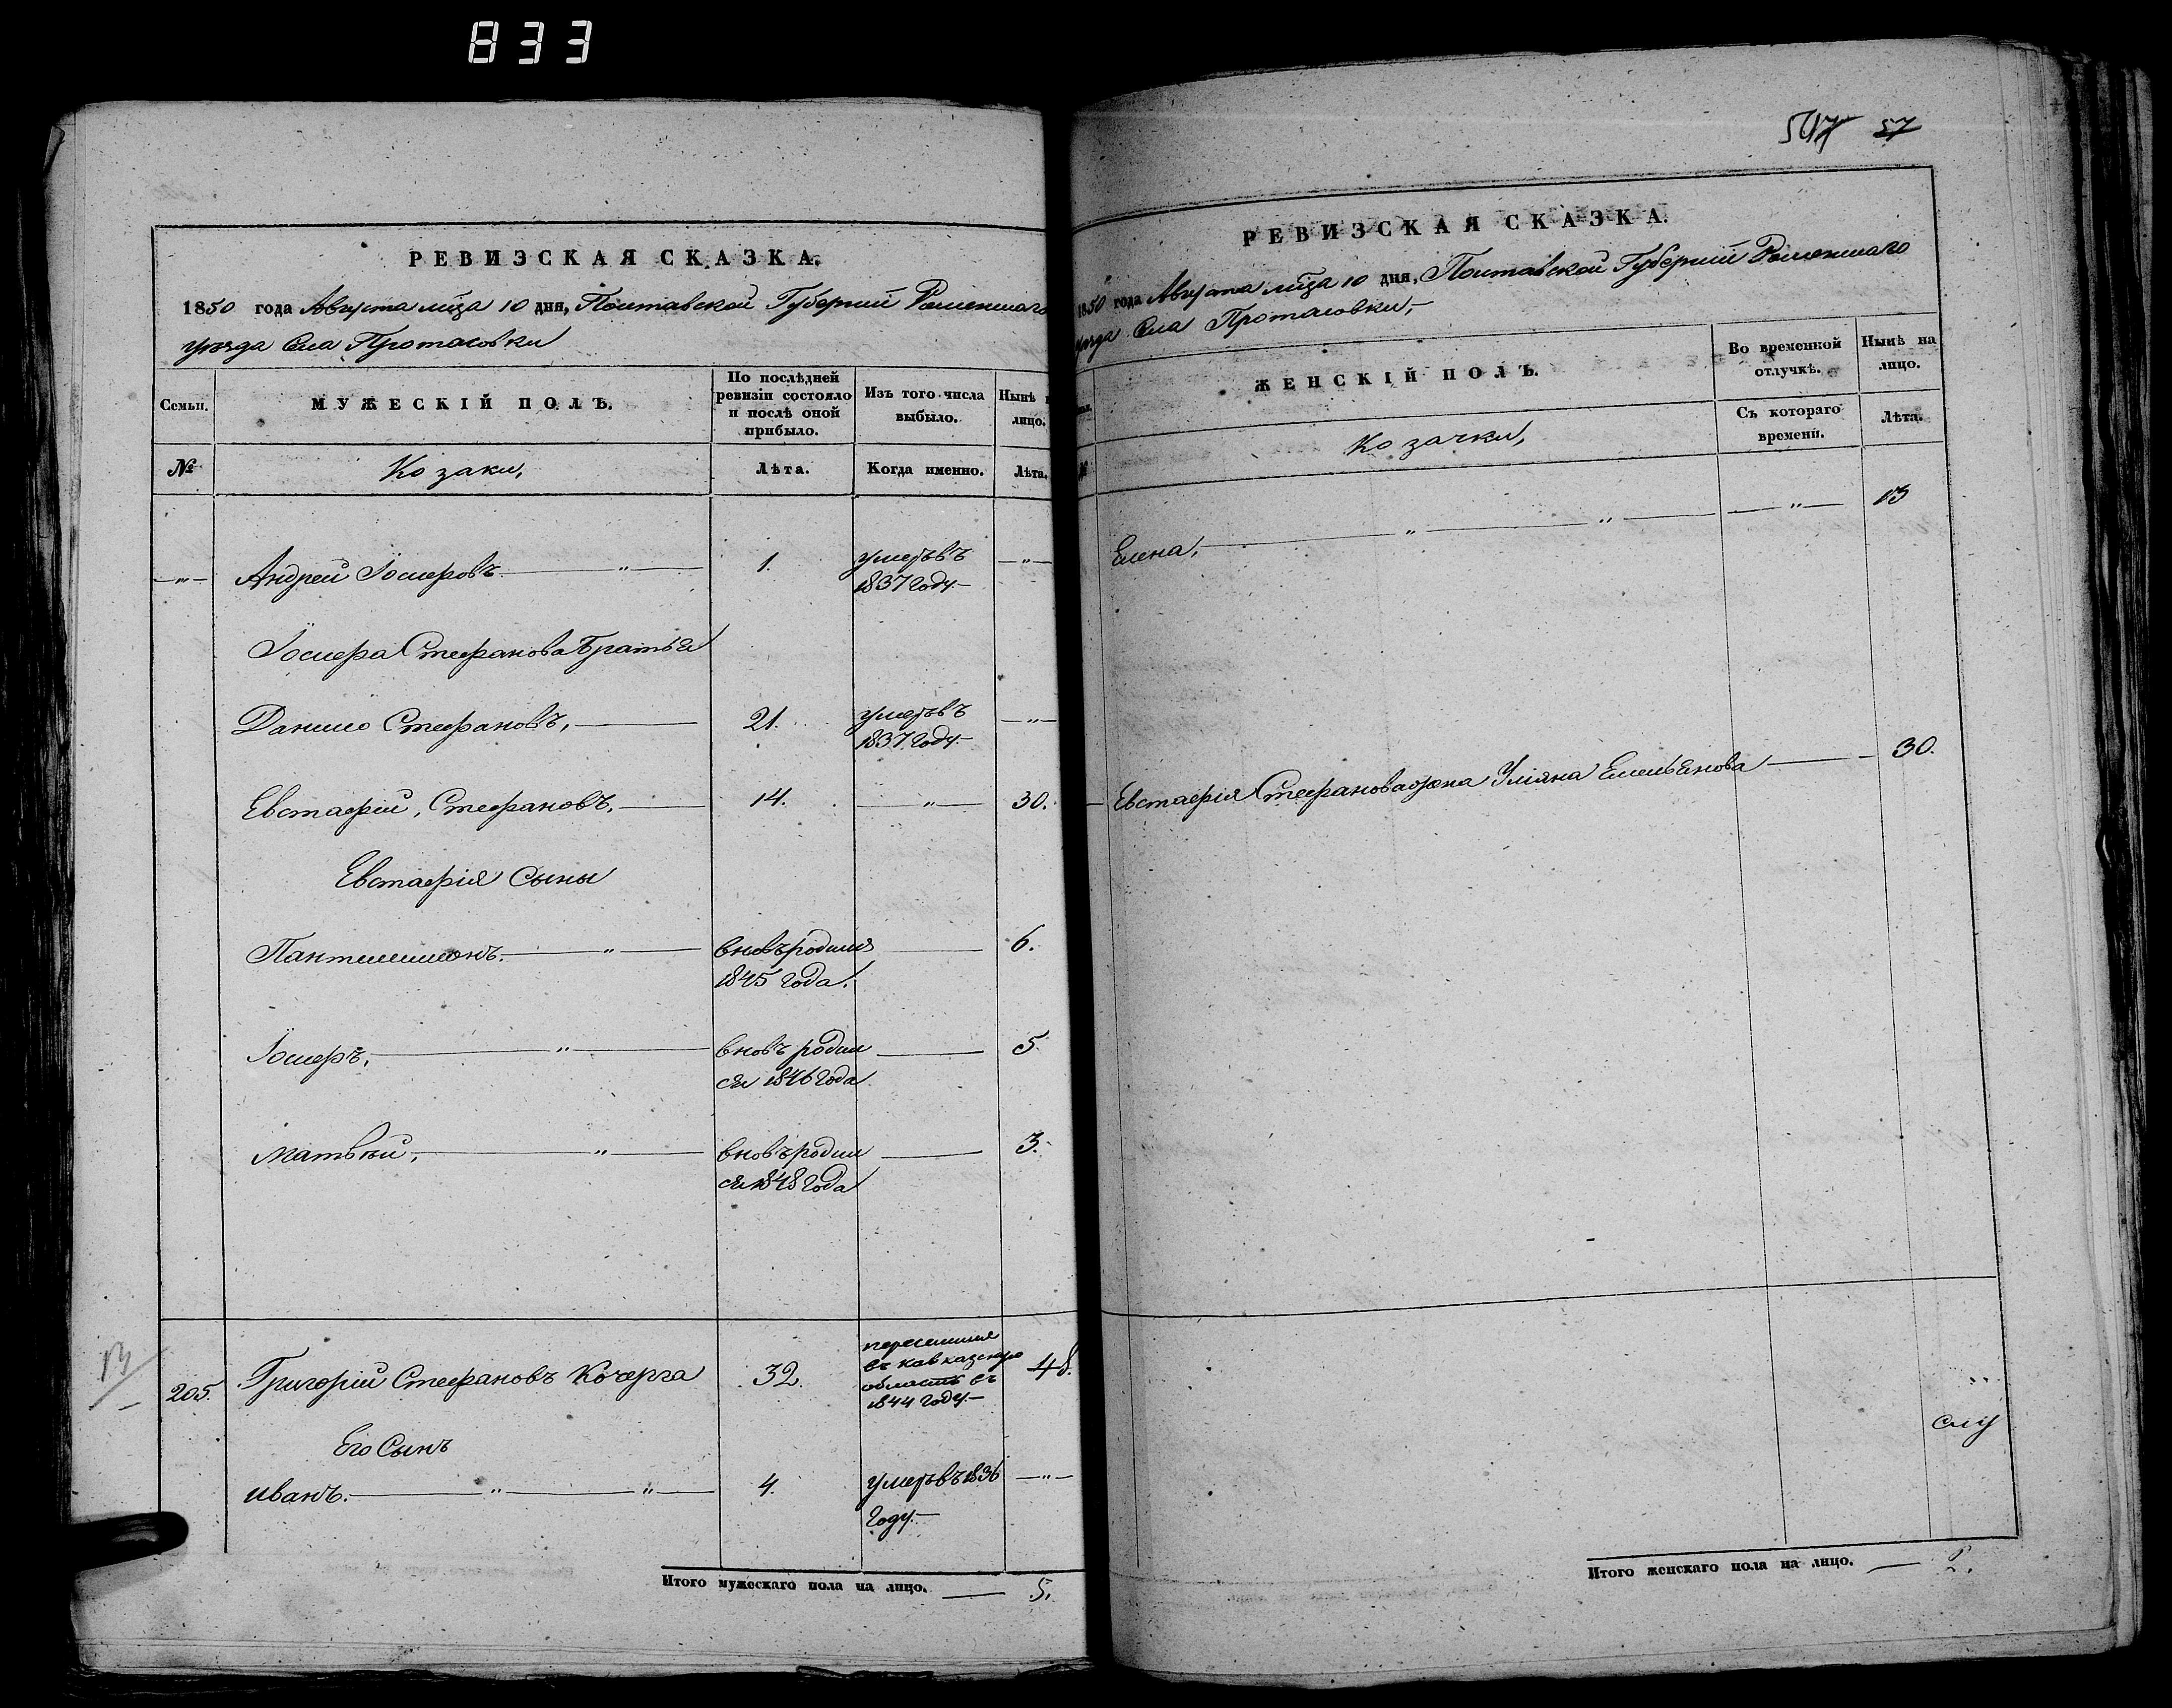 833
РЕВИЗСКАЯ СКАЗКА.
1850 года Августа мца 10 дня, Полтавской Губернии Роменскаго
уѣзда Села Протасовки
Семьи.
МУЖЕСКІЙ ПОЛЪ.
По послѣдней ревизіи состояло и послѣ оной прибыло.
Изъ того числа выбыло.
Нынѣ
лицо.
№
Козаки,
Лѣта.
Когда именно.
Лѣта.
Андрей Іосифовъ 1. умеръ въ
1837 году.
Іосифа Стефанова Братья
Данило Стефановъ, 21. умеръ въ
1837 году.
Евстафий, Стефановъ, 14. 30.
Евстафія Сыны
Пантелимонъ. вновь родился 6.
1845 года.
Іосифъ, вновь родил 5.
ся 1846 года
Матвѣй, вновь родил 3.
ся 1848 года
205. Григорій Стефановъ Кочерга 32. переселился
въ кавказскую
область въ
1844 году. 48.
Его Сынъ
Иванъ. 4. умеръ въ 1836
году.
Итого мужескаго пола на лицо. 5.
57
РЕВИЗСКАЯ СКАЗКА.
1850 года Августа мца 10 дня, Полтавской Губернии Роменскаго
уѣзда Села Протасовки,
ЖЕНСКІЙ ПОЛЪ.
Во временной отлучкѣ.
Нынѣ на лицо.
Козачки,
Съ котораго времени.
Лѣта.
Елена, 13
Евстафія Стефанова жена Уліяна Емельянова 30.
Итого женскаго пола на лицо. 2.